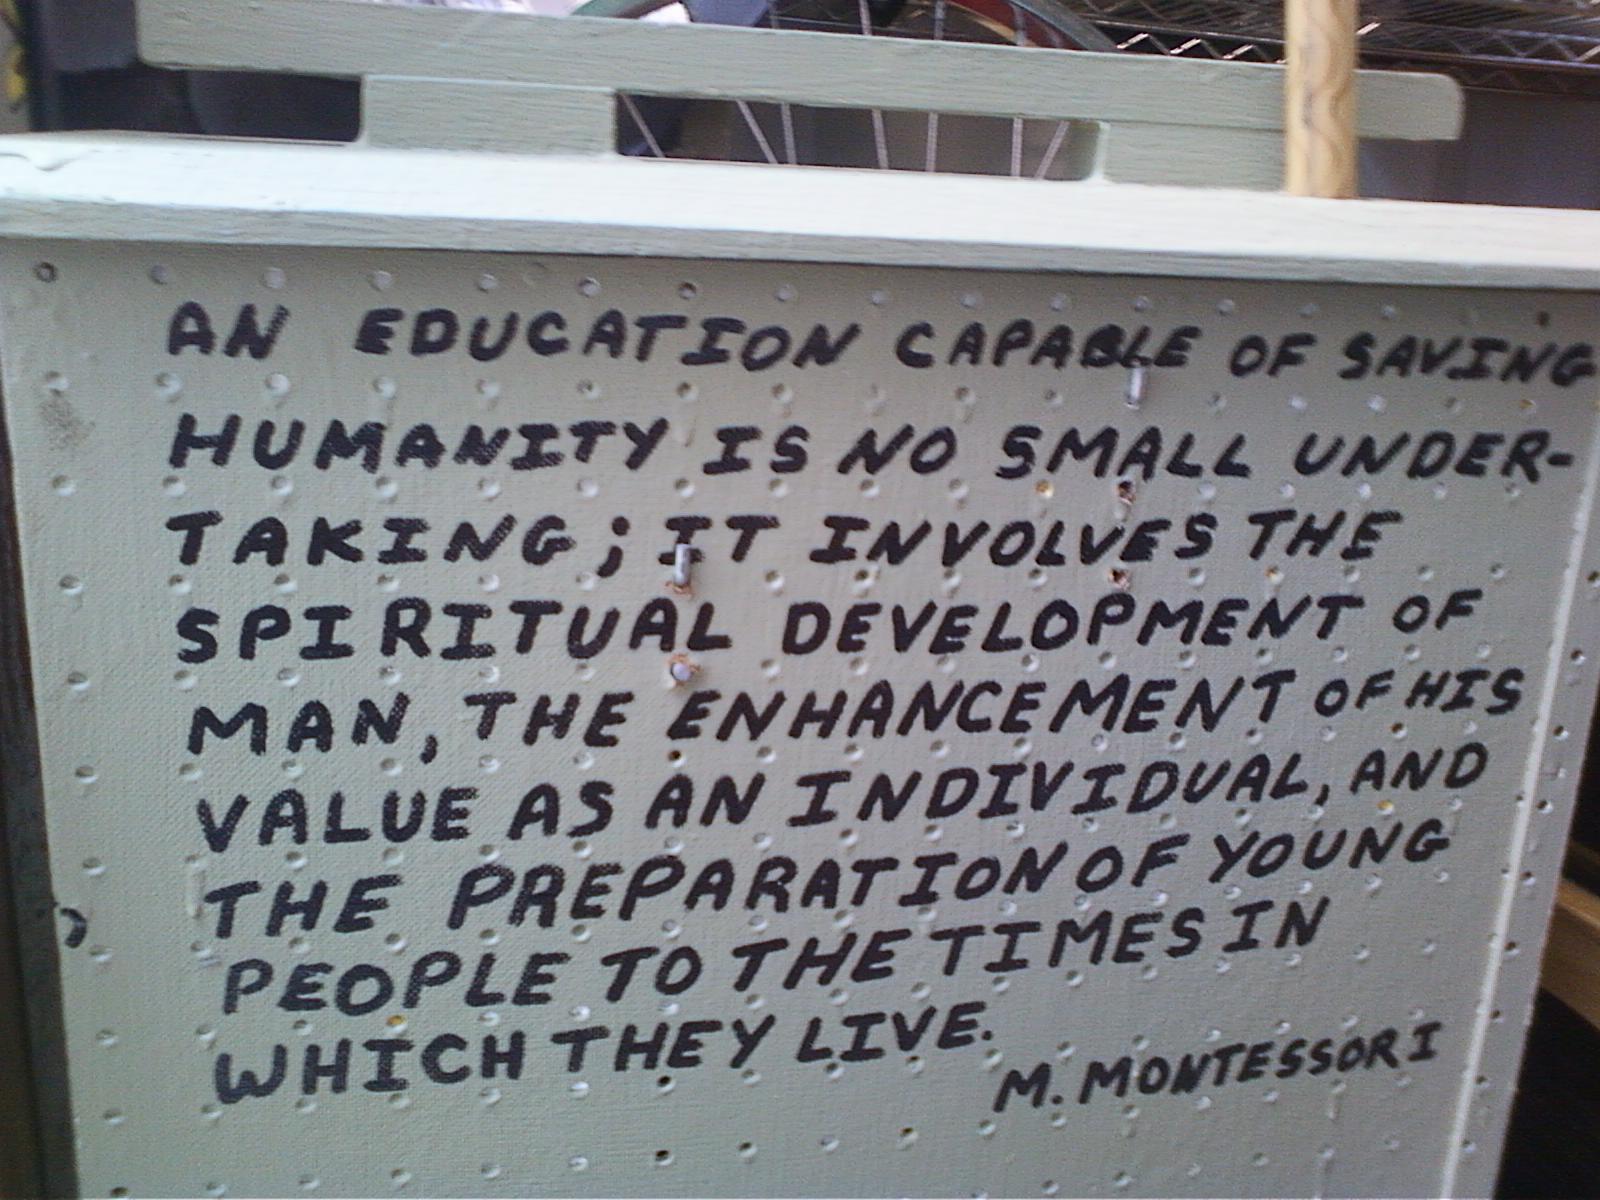 AN EDUCATION CAPABLE OF SAVING
HUMANITY IS NO SMALL UNDER-
TAKING; IT INVOLVES THE
SPIRITUAL DEVELOPMENT OF
MAN, THE ENHANCEMENT OF HIS
VALUE AS AN INDIVIDUAL, AND
THE PREPARATION OF YOUNG
PEOPLE TO THE TIMES IN
WHICH THEY LIVE.
M. MONTESSORI